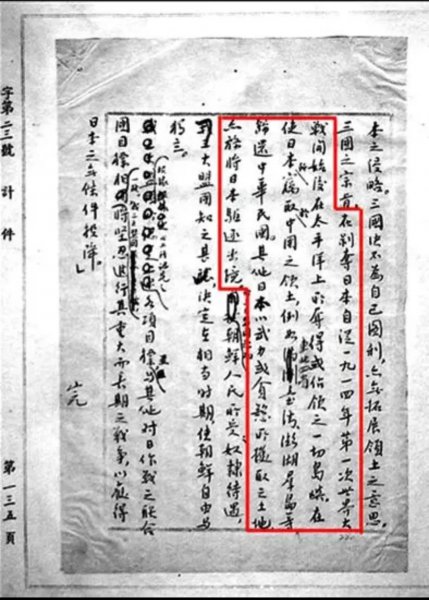 本之侵略。三國決不為自己圖利，亦無拓展領土之意思。
三國之宗旨，在剝奪日本自從一九一四年第一次世界大
戰開始後在太平洋上所奪得或佔領之一切島嶼，在
使日本竊取中國之領土，例如臺灣澎湖群島等
歸還中華民國。其他日本以武力或貪慾所攫取之土地
亦務將日本驅逐出境，朝鮮人民所受奴隸待遇，
三大盟國知之甚悉，決定在相當時期，使朝鮮自由與
獨立。
各項目標與其他對日作戰之聯合
國目標相將堅忍進行其重大而長期之戰爭，以獲得
日本之無條件投降。」
完
字第二三號 計 件
第一三五頁